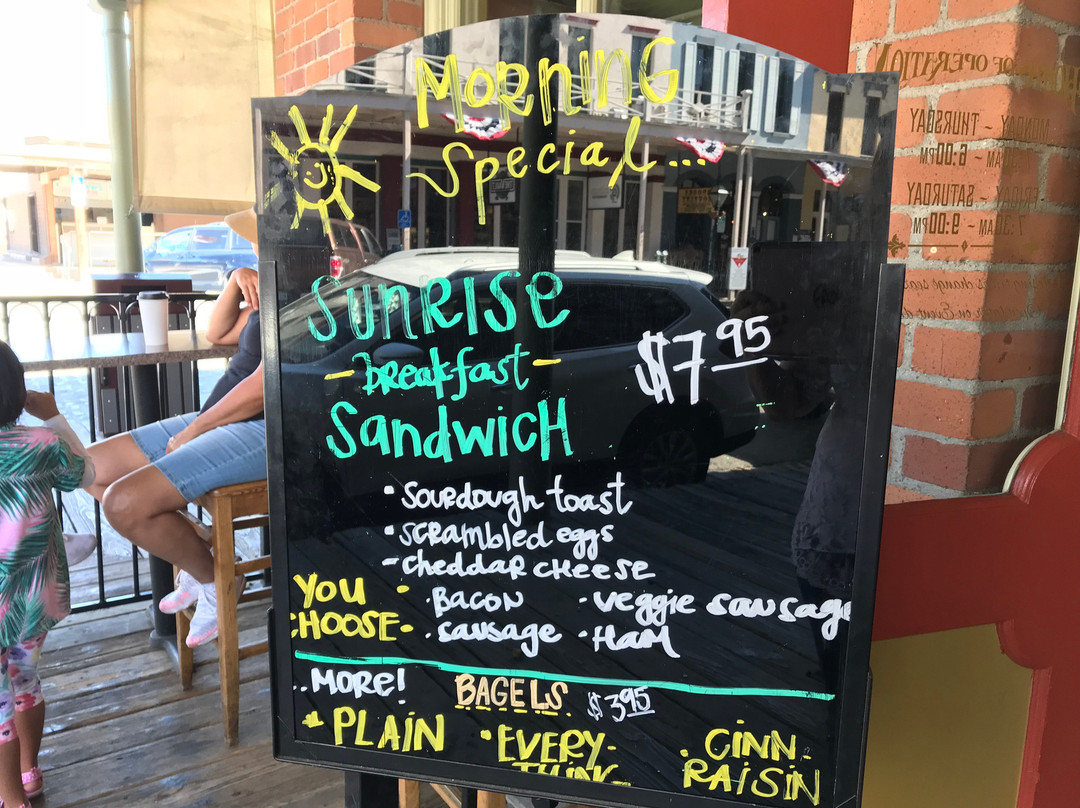 MORNING
Special...
SUNRISE
- breakfast -
SANDWICH
$7 95
• SOURDOUGH toast
• SCRAMBLED eggs
- CHEDDAR CHEESE
YOU
CHOOSE
• BACON
• veggie sausage
• sausage
• HAM
..MORE!
BAGELS $3 95
• PLAIN
• EVERY-
THING
• CINN.
RAISIN
OF OPERATION
MONDAY ~ THURSDAY
AM ~ 6:00PM
FRIDAY ~ SATURDAY
7:30 AM ~ 9:00PM